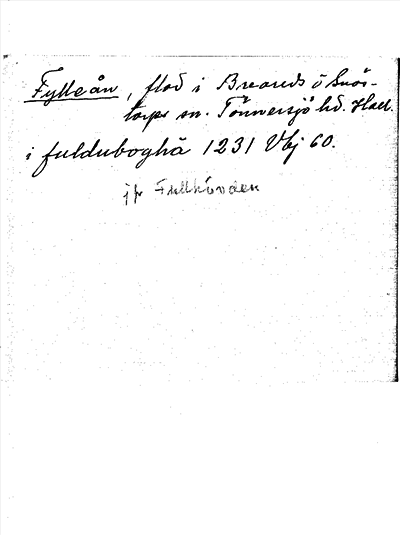 Fylleån, flod i Breareds o Snös-
torps sn. Tönnersjö hd. Hall.
i fulduboghā 1231 Vbj 60.
jfr Fyllhövden